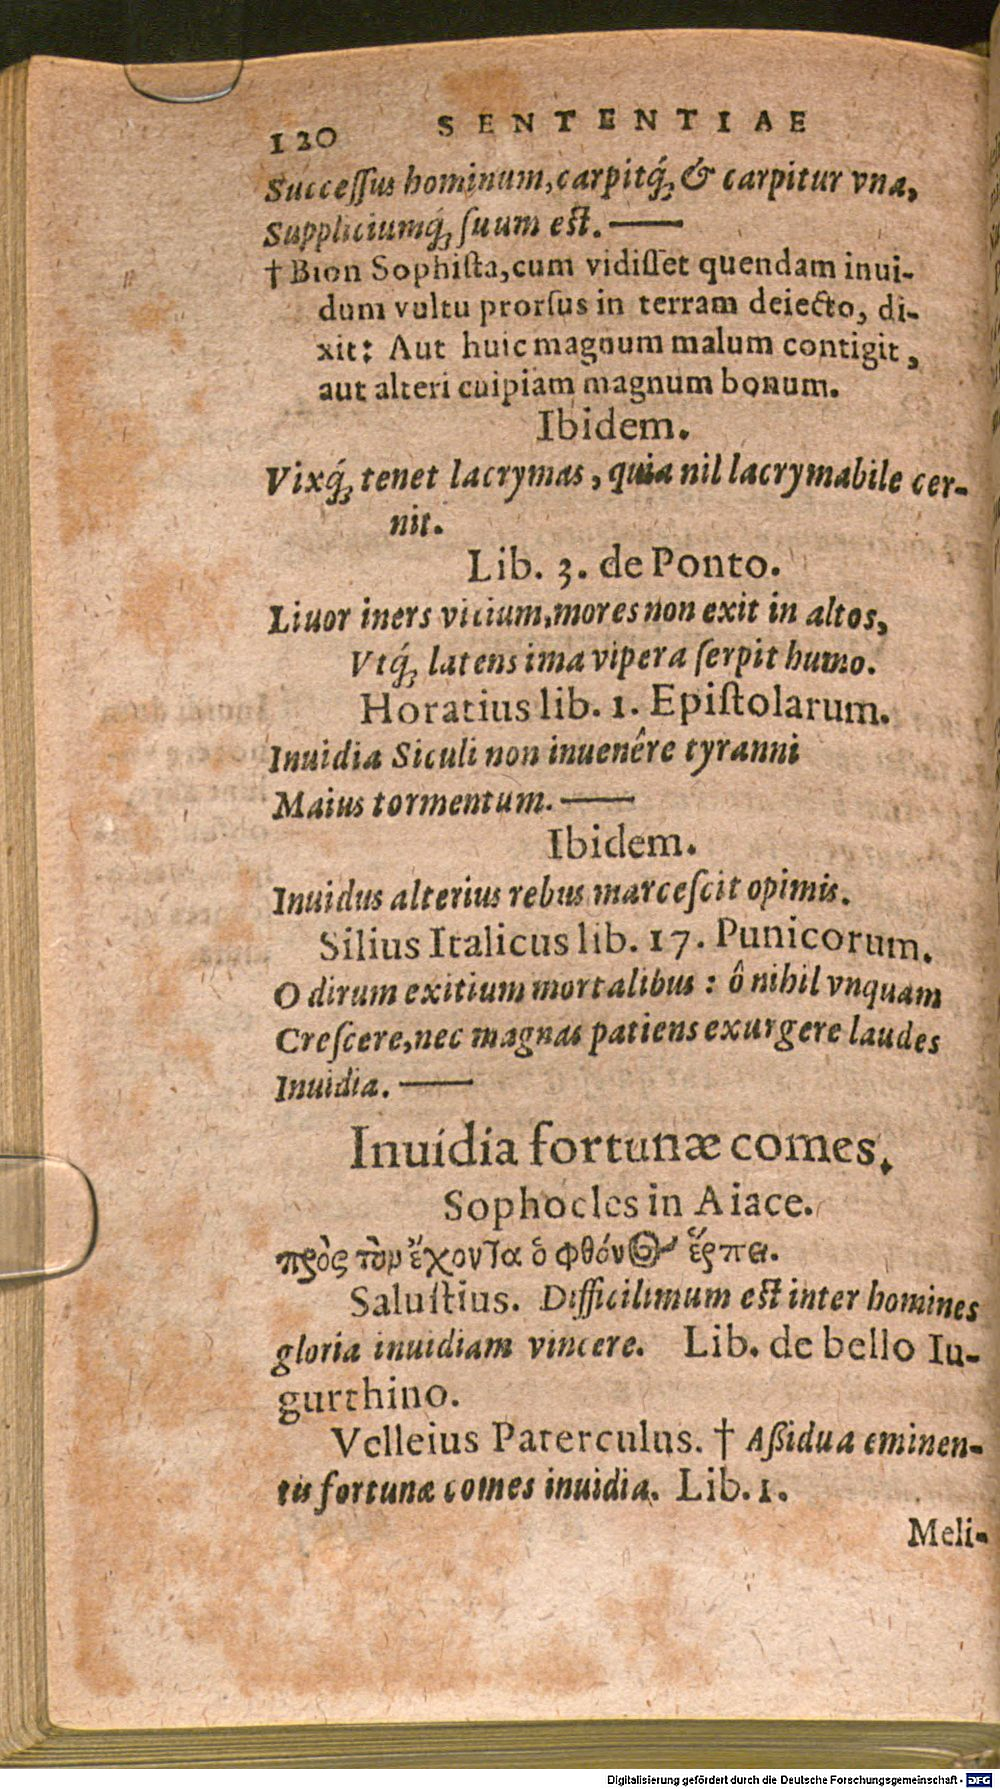 120 SENTENTIAE
Successus hominum, carpitq́ꝫ & carpitur vna,
Suppliciumq́ꝫ suum est. —
† Bion Sophista, cum vidisset quendam inui-
dum vultu prorsus in terram deiecto, di-
xit: Aut huic magnum malum contigit,
aut alteri cuipiam magnum bonum.
Ibidem.
Vixq́ꝫ tenet lacrymas, quia nil lacrymabile cer-
nit.
Lib. 3. de Ponto.
Liuor iners vitium, mores non exit in altos,
Vtq́ꝫ latens ima vipera serpit humo.
Horatius lib. 1. Epistolarum.
Inuidia Siculi non inuenêre tyranni
Maius tormentum. —
Ibidem.
Inuidus alterius rebus marcescit opimis.
Silius Italicus lib. 17. Punicorum.
O dirum exitium mortalibus : ô nihil vnquam
Crescere, nec magnas patiens exurgere laudes
Inuidia. —
Inuidia fortunæ comes.
Sophocles in Aiace.
πρὸς τὸν ἔχοντα ὁ φθόνος ἕρπει.
Salustius. Difficilimum est inter homines
gloria inuidiam vincere. Lib. de bello Iu-
gurthino.
Velleius Paterculus. † Aßidua eminen-
tis fortunæ comes inuidia. Lib. 1.
Meli-
Digitalisierung gefördert durch die Deutsche Forschungsgemeinschaft - DFG